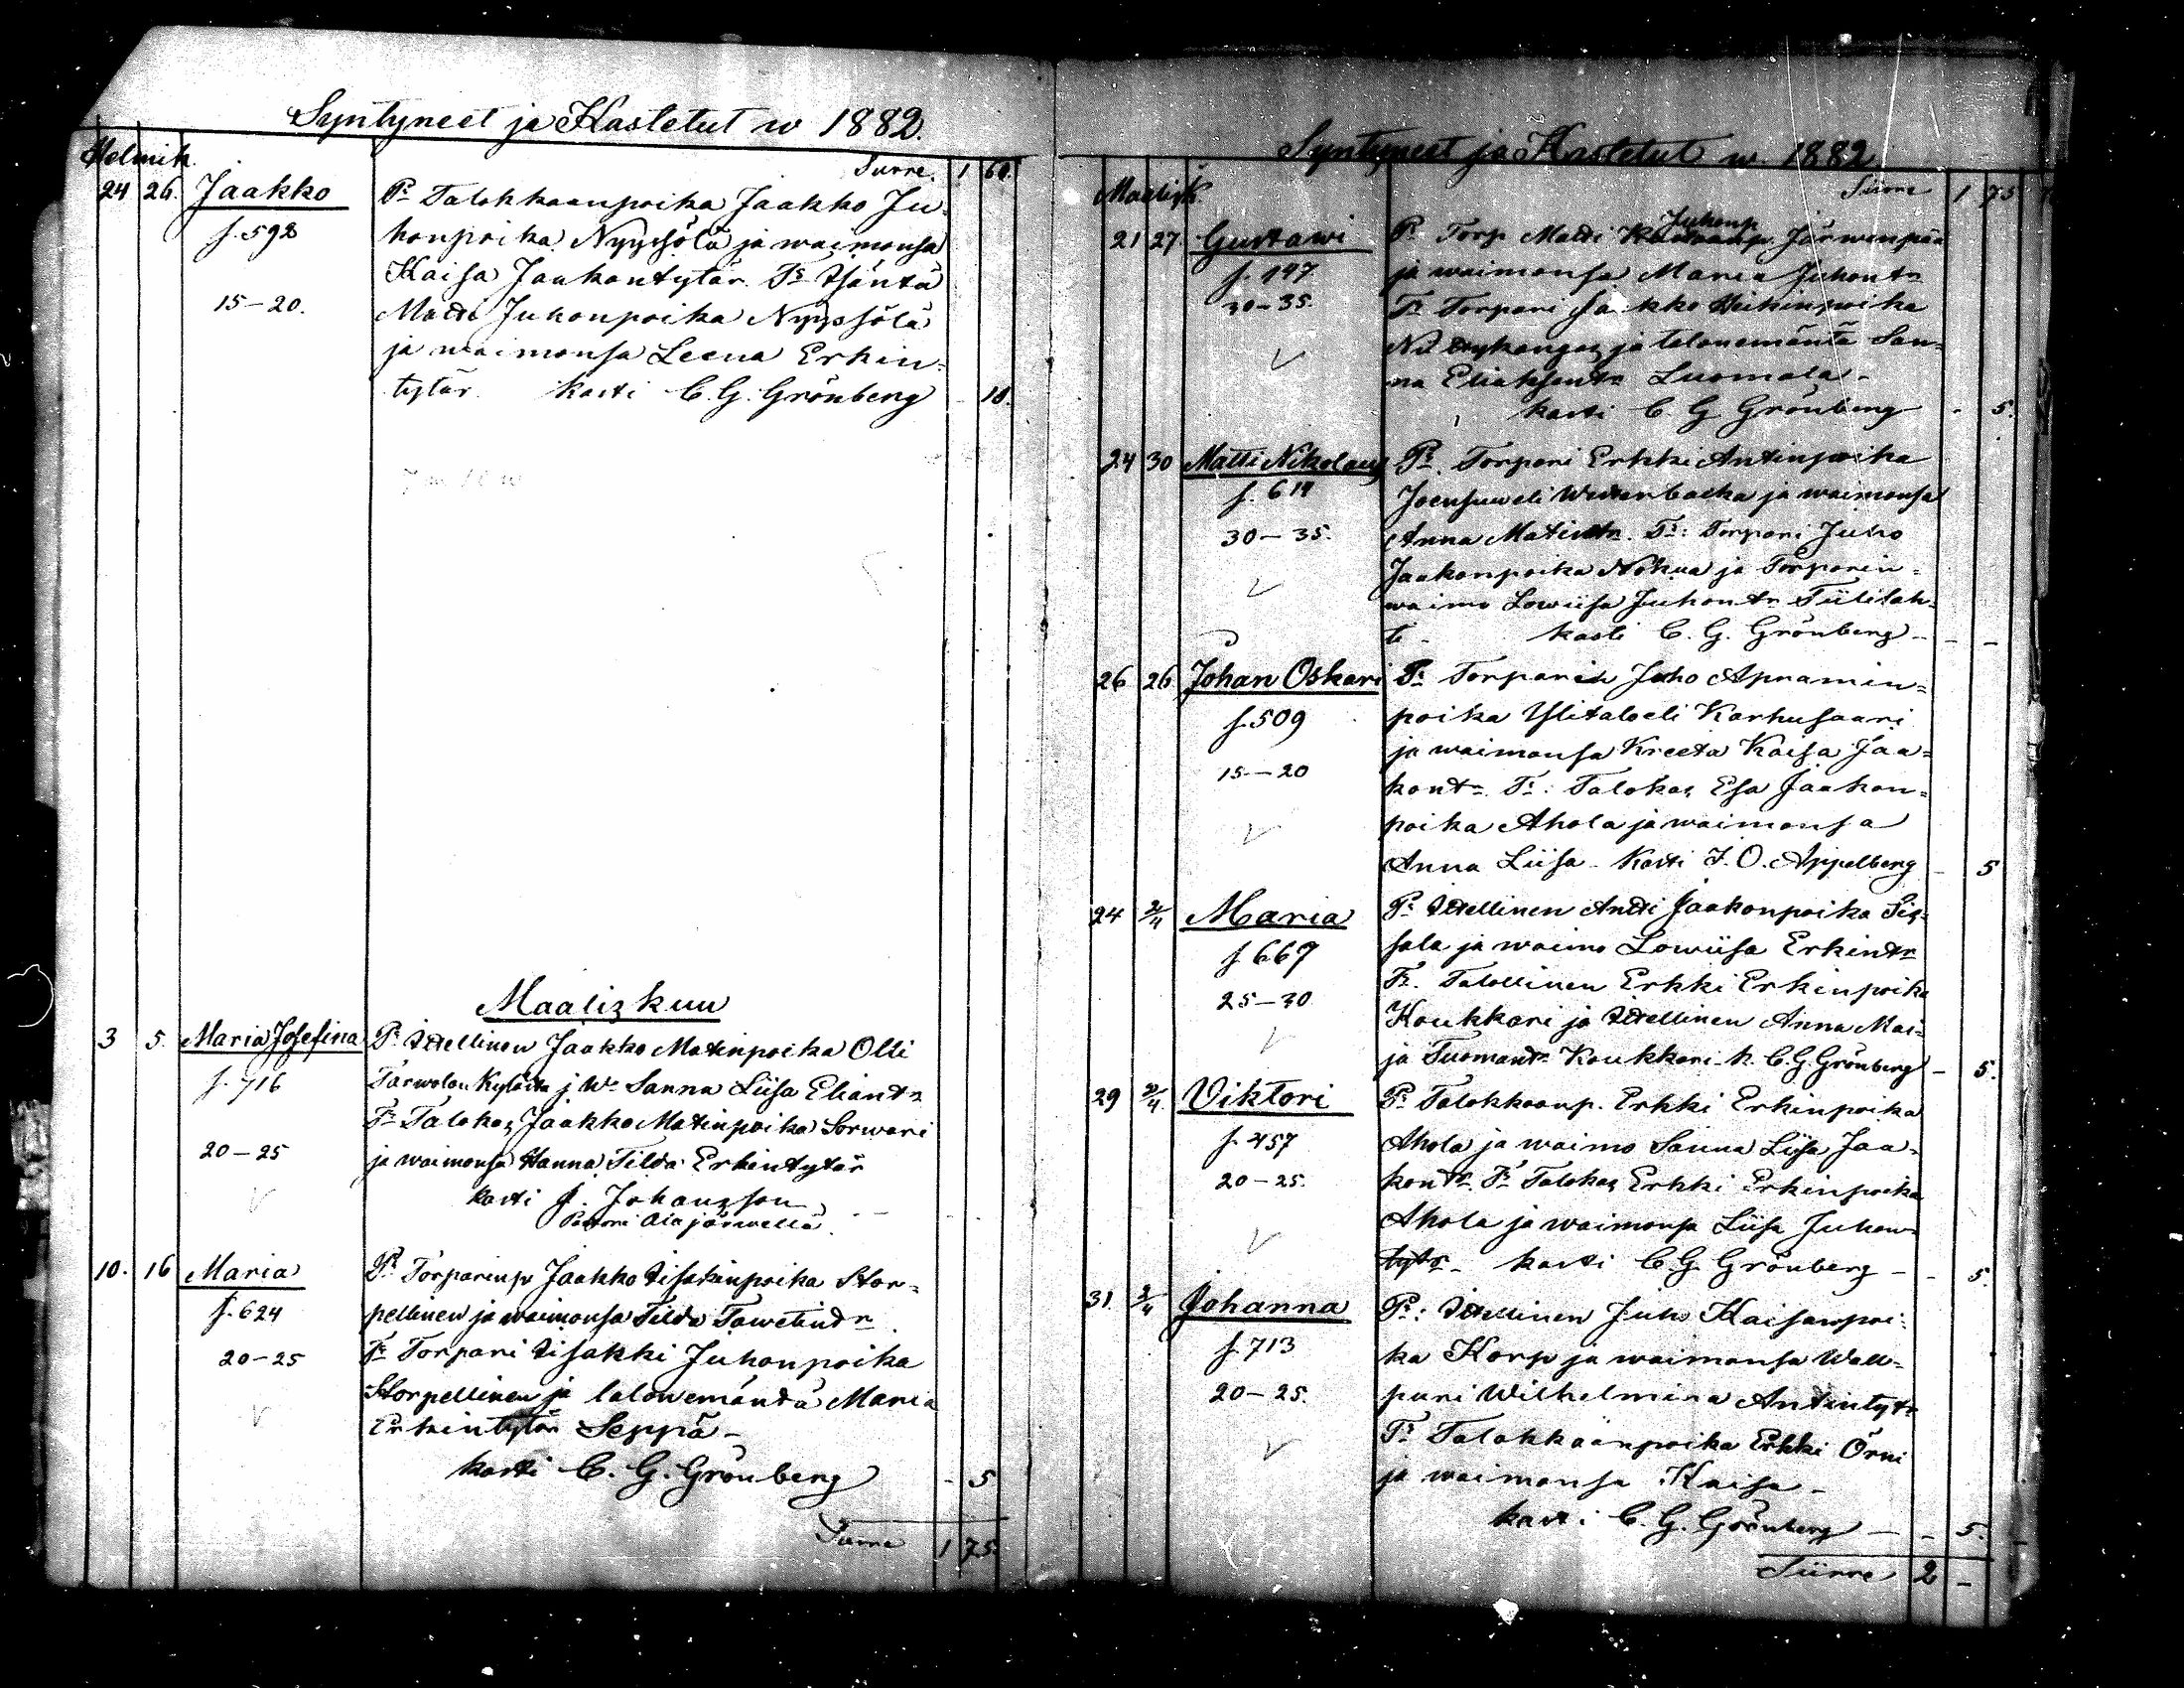 Syntyneet ja Kastetut w 1882.
Helmik.
Siirre. 1 60.
24 26. Jaakko Pr Talokkaanpoika Jaakko Ju-
f. 592 honpoika Nyyssölä ja waimonsa
Kaisa Jaakontytär. Tr Isäntä
15-20. Matti Juhonpoika Nyyssölä
ja waimonsa Leena Erkin-
tytär. kasti C. G. Grönberg - 10.
Maaliskuu
3 5. Maria Josefina Pr Itellinen Jaakko Matinpoika Olli
f. 716 Tarwolan kylästä j. Wo Sanna Liisa Eliantr
Tr Talokas Jaakko Matinpoika Sorwari
20-25 ja waimonsa Hanna Tilda Erkintytär
kasti J. Johansson
Pastori Alajärwellä.
10. 16 Maria Pr Torparinp Jaakko Iisakinpoika Stor-
f. 624 pellinen ja waimonsa Tilda Tawetindr
20-25 Tr Torpari Iisakki Juhonpoika
Storpellinen ja talonemäntä Maria
Erkintytär Seppä-
kasti C. G. Grönberg - 5
Siirre 1 75.
Syntyneet ja Kastetut w. 1882.
Maalisk.
Siirre 1 75
Juhonp
21 27. Gustawi Pr Torp Matti Järwenpää
f. 147 ja waimonsa Maria Juhontr
30-35. Tr Torpari Jaakko Heikinpoika
ja talonemäntä San-
na Eliaksentr Luomala-
kasti C. G. Grönberg - 5.
24 30 Matti Nikolaus Pr. Torpari Erkki Antinpoika
f. 614 Joensuu eli Westerbacka ja waimonsa
30-35. Anna Matintr. Tr: Torpari Juho
Jaakonpoika Nokua ja Torparin-
waimo Lowiisa Juhontr Tiilitah-
ti - kasti C. G. Grönberg - - -
26 26 Johan Oskari Pr Torparin Juho Apramin-
f. 509 poika Ylitalo eli Karhusaari
ja waimonsa Kreeta Kaisa Jaa-
15-20 kontr. Tr: Talokas Esa Jaakon-
poika Ahola ja waimonsa
Anna Liisa - kasti J. O. Appelberg - 5
24 2/4 Maria Pr Itellinen Antti Jaakonpoika Sis-
f. 667 sala ja waimo Lowiisa Erkintr
Tr. Talollinen Erkki Erkinpoika
25-30 Koukkari ja Itellinen Anna Mai-
ja Tuomantr Koukkari - k. C. G. Grönberg - 5.
29 2/4 Viktori Pr Talokkaanp. Erkki Erkinpoika
f. 457 Ahola ja waimo Sanna Liisa Jaa-
20-25. kontr Tr Talokas Erkki Erkinpoika
Ahola ja waimonsa Liisa Juhon-
tytr - kasti C. G. Grönberg - - 5.
31. 2/4 Johanna Pr: Itellinen Juho Kaisanpoi-
f. 713 ka Korp ja waimonsa Wall-
20-25. puri Wilhelmina Antintytr
Tr Talokkaanpoika Erkki Örni
ja waimonsa Kaisa -
kasti C. G. Grönberg - - 5.
Siirre 2 -